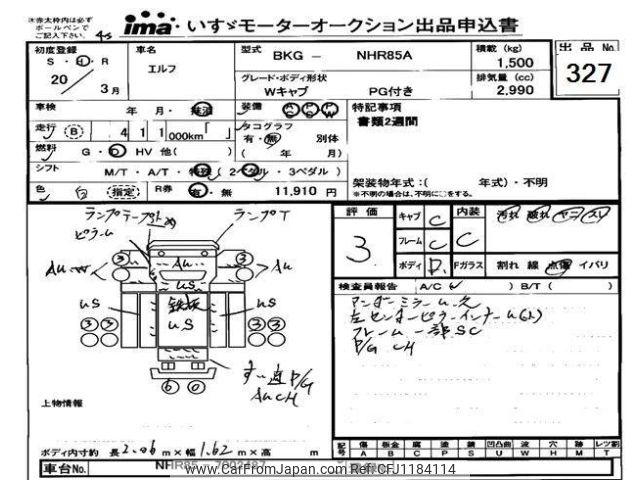 ※赤太枠内は必ず
ボールペンで
ご記入下さい。 4s
ima いすゞモーターオークション出品申込書
出品No. 327
初度登録 車名 型式 BKG － NHR85A 積載 (kg) 1,500
S・H・R エルフ
20 3月 グレード・ボディ形状 排気量 (cc)
Wキャブ PG付き 2,990
車検 年 月・抹消 装備 AC PS PW 特記事項
書類2週間
走行 (B) 4 1 1 000km タコグラフ
有・無 別体
燃料 G・D HV 他( ) ( 年 月)
シフト M/T・A/T・特殊 (2ペダル・3ペダル)
色 白 (指定) R券 有・無 11,910 円
架装物年式:( 年式)・不明
※不明の場合は、不明に○をする。
評価 3 キャブ C 内装 C 汚れ 破れ ヤニ スレ
フレーム C
ボディ D Fガラス 割れ 線 点傷 イバリ
検査員報告 A/C( ) B/T( )
アンダーミラームシ欠
左センターピラーインナーム(2)
フレーム一部SC
P/G CH
ランプテープトメ ランプT
ピラーム
Au Au Au
us us us
鉄板
us
3 3 3 3 3 3
6 0
P/G
Au CH
上物情報
ボディ内寸約 長 2.06 m×幅 1.62 m×高 m
記号 傷 A 板金 B 腐 C 塗 P 錆 S 凹凸曲 U 波 W 穴 H 跡 M レツ割 T
車台No. NHR85 - 7002487
www.CarFromJapan.com Ref:CFJ1184114